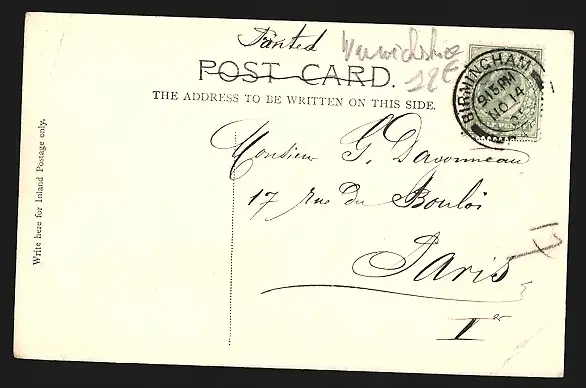 Printed
Warwickshire
12E
POST CARD.
THE ADDRESS TO BE WRITTEN ON THIS SIDE.
BIRMINGHAM
9 15 PM
NO 14
Write here for Inland Postage only.
Monsieur G. Davonneau
17 rue du Bouloi
Paris
Ier
17